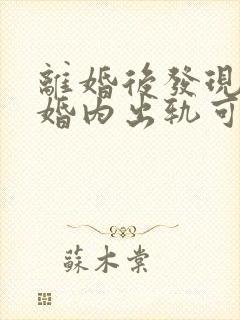 離婚後發現
婚內出軌可
蘇木棠